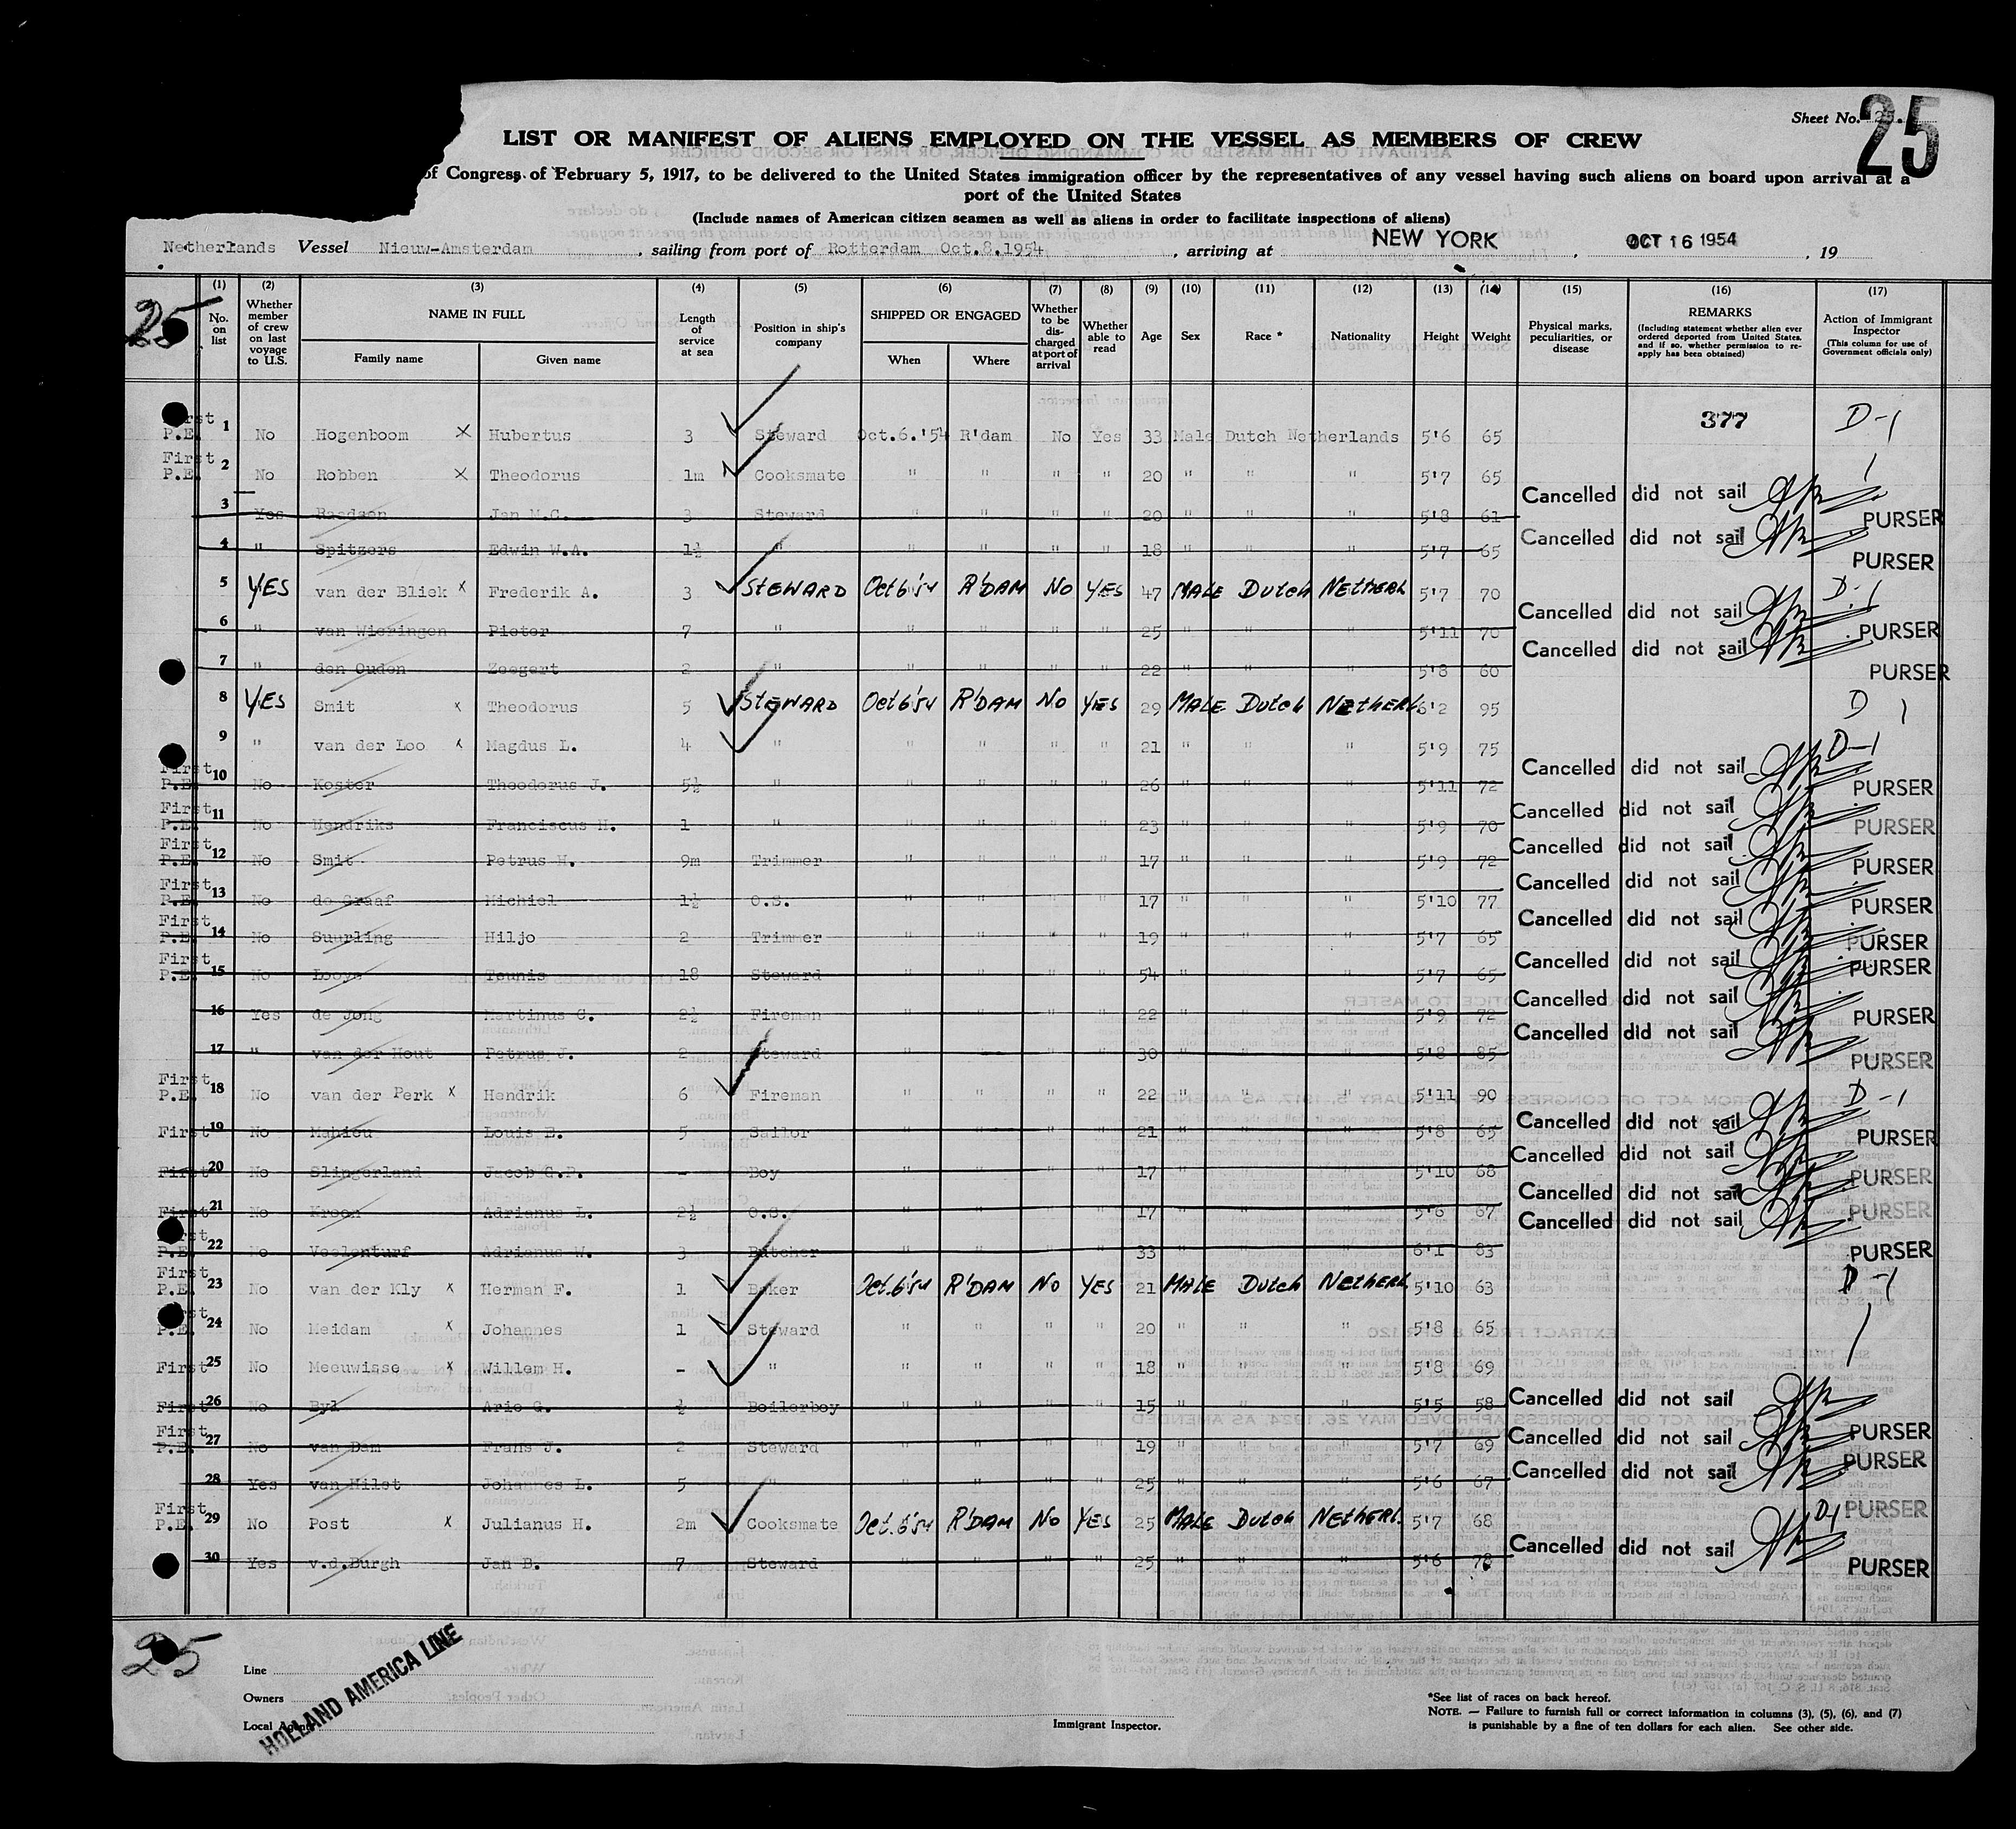 Sheet No. 25
LIST OR MANIFEST OF ALIENS EMPLOYED ON THE VESSEL AS MEMBERS OF CREW
of Congress of February 5, 1917, to be delivered to the United States immigration officer by the representatives of any vessel having such aliens on board upon arrival at a
port of the United States
(Include names of American citizen seamen as well as aliens in order to facilitate inspections of aliens)
Netherlands Vessel Nieuw-Amsterdam , sailing from port of Rotterdam Oct.8.1954 , arriving at NEW YORK , OCT 16 1954 , 19
25
(1) No. on list (2) Whether member of crew on last voyage to U.S. (3) NAME IN FULL Family name Given name (4) Length of service at sea (5) Position in ship's company (6) SHIPPED OR ENGAGED When Where (7) Whether to be discharged at port of arrival (8) Whether able to read (9) Age (10) Sex (11) Race * (12) Nationality (13) Height (14) Weight (15) Physical marks, peculiarities, or disease (16) REMARKS (Including statement whether alien ever ordered deported from United States, and if so, whether permission to reapply has been obtained) (17) Action of Immigrant Inspector (This column for use of Government officials only)
377
First P.E. 1 No Hogenboom x Hubertus 3 Steward Oct.6.'54 R'dam No Yes 33 Male Dutch Netherlands 5'6 65 D-1
First P.E. 2 No Robben x Theodorus 1m Cooksmate " " " " 20 " " " 5'7 65 1
3 Yes Raadsen Jan M.C. 3 Steward " " " " 20 " " " 5'8 61 Cancelled did not sail PURSER
4 " Spitzers Edwin W.A. 1½ " " " " " 18 " " " 5'7 65 Cancelled did not sail PURSER
5 YES van der Bliek x Frederik A. 3 STEWARD Oct 6'54 R'DAM No YES 47 MALE Dutch NETHERL 5'7 70 D-1
6 " van Wieringen Pieter 7 " " " " " 25 " " " 5'11 70 Cancelled did not sail PURSER
7 " den Ouden Zeegert 2 " " " " " 22 " " " 5'8 60 Cancelled did not sail PURSER
8 YES Smit x Theodorus 5 STEWARD Oct 6'54 R'DAM No YES 29 MALE Dutch NETHERL 6'2 95 D 1
9 " van der Loo x Magdus L. 4 " " " " " 21 " " " 5'9 75 D-1
First P.E. 10 No Koster Theodorus J. 5½ " " " " " 26 " " " 5'11 72 Cancelled did not sail PURSER
First P.E. 11 No Hendriks Franciscus H. 1 " " " " " 23 " " " 5'9 70 Cancelled did not sail PURSER
First P.E. 12 No Smit Petrus H. 9m Trimmer " " " " 17 " " " 5'9 72 Cancelled did not sail PURSER
First P.E. 13 No de Graaf Michiel 1½ O.S. " " " " 17 " " " 5'10 77 Cancelled did not sail PURSER
First P.E. 14 No Suurling Hiljo 2 Trimmer " " " " 19 " " " 5'7 65 Cancelled did not sail PURSER
First P.E. 15 No Looys Teunis 18 Steward " " " " 54 " " " 5'7 65 Cancelled did not sail PURSER
16 Yes de Jong Martinus C. 2½ Fireman " " " " 22 " " " 5'9 72 Cancelled did not sail PURSER
17 " van der Hout Petrus J. 2 Steward " " " " 30 " " " 5'8 85 Cancelled did not sail PURSER
First P.E. 18 No van der Perk x Hendrik 6 Fireman " " " " 22 " " " 5'11 90 D-1
First 19 No Mahieu Louis E. 5 Sailor " " " " 21 " " " 5'8 65 Cancelled did not sail PURSER
First 20 No Slingerland Jacob G.P. - Boy " " " " 17 " " " 5'10 68 Cancelled did not sail PURSER
First 21 No Kroon Adrianus L. 2½ O.S. " " " " 17 " " " 5'6 67 Cancelled did not sail PURSER
First P.E. 22 No Veelenturf Adrianus W. 3 Butcher " " " " 33 " " " 6'1 83 Cancelled did not sail PURSER
First P.E. 23 No van der Kly x Herman F. 1 Baker Oct.6'54 R'DAM No YES 21 MALE Dutch NETHERL 5'10 63 D-1
First P.E. 24 No Meidam x Johannes 1 Steward " " " " 20 " " " 5'8 65
First 25 No Meeuwisse x Willem H. - " " " " " 18 " " " 5'8 69
First 26 No Byl Arie G. ½ Boilerboy " " " " 15 " " " 5'5 58 Cancelled did not sail PURSER
First P.E. 27 No van Dam Frans J. 2 Steward " " " " 19 " " " 5'7 69 Cancelled did not sail PURSER
28 Yes van Hilst Johannes L. 5 " " " " " 25 " " " 5'6 67 Cancelled did not sail PURSER
First P.E. 29 No Post x Julianus H. 2m Cooksmate Oct.6'54 R'DAM No YES 25 MALE Dutch NETHERL. 5'7 68 D-1
30 Yes v.d.Burgh Jan B. 7 Steward " " " " 25 " " " 5'6 78 Cancelled did not sail PURSER
25
Line
Owners
Local Agents
HOLLAND AMERICA LINE
Immigrant Inspector.
*See list of races on back hereof.
NOTE. — Failure to furnish full or correct information in columns (3), (5), (6), and (7)
is punishable by a fine of ten dollars for each alien. See other side.